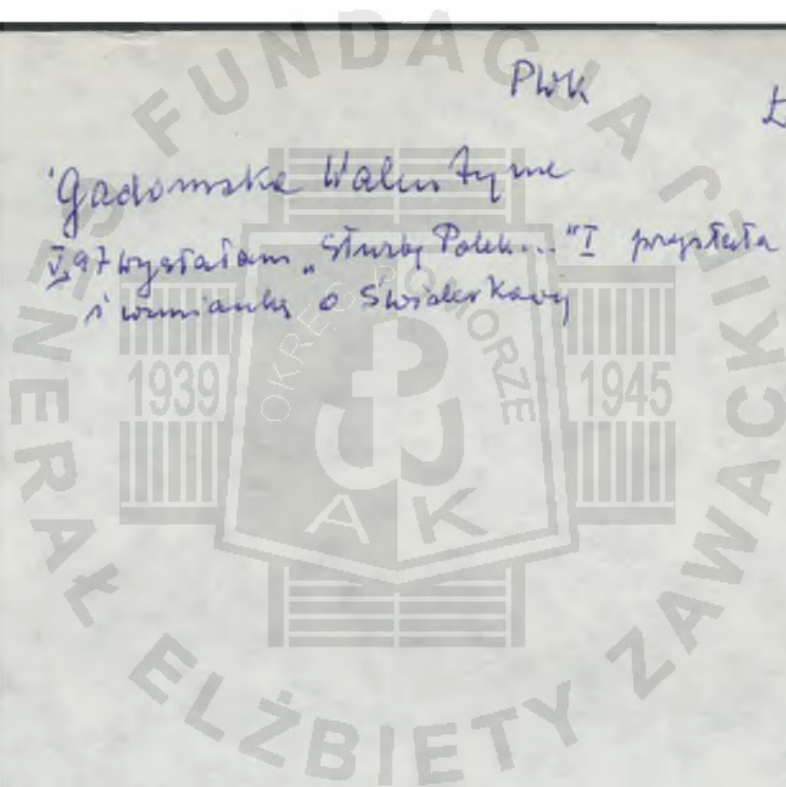 PWK
Gadomska Walentyna
V.97 wysłałam "Służbę Polek..." I przysłała
i wzmiankę o Świderkowej
FUNDACJA GENERAŁ ELŻBIETY ZAWACKIEJ
OKRĘG POMORZE
1939 1945
AK